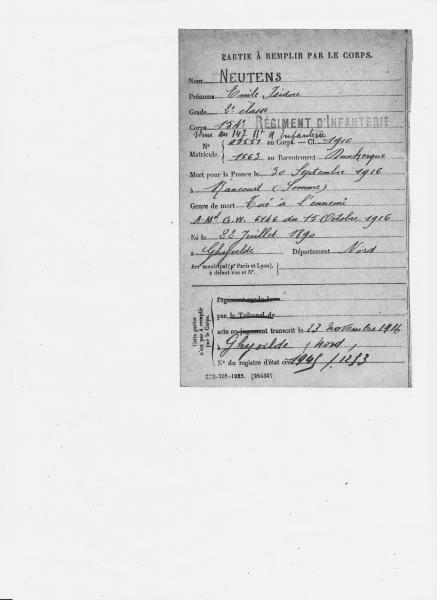 PARTIE À REMPLIR PAR LE CORPS.
Nom NEUTENS
Prénoms Emile Isidore
Grade 2e classe
Corps 154e RÉGIMENT D'INFANTERIE
Venu du 147 Rt d'Infanterie
N° 01551 au Corps. — Cl. 1910
Matricule. 1563 au Recrutement Dunkerque
Mort pour la France le 30 Septembre 1916
à Rancourt (Somme)
Genre de mort Tué à l'ennemi
A.M. G.W. 6166 du 15 Octobre 1916
Né le 22 Juillet 1890
à Ghyvelde Département Nord
Arrt municipal (pr Paris et Lyon),
à défaut rue et N°.
Cette partie
n'est pas à remplir
par le Corps.
Jugement rendu le
par le Tribunal de
acte ou jugement transcrit le 23 novembre 1917
à Ghyvelde (Nord)
N° du registre d'état civil 1945/1253